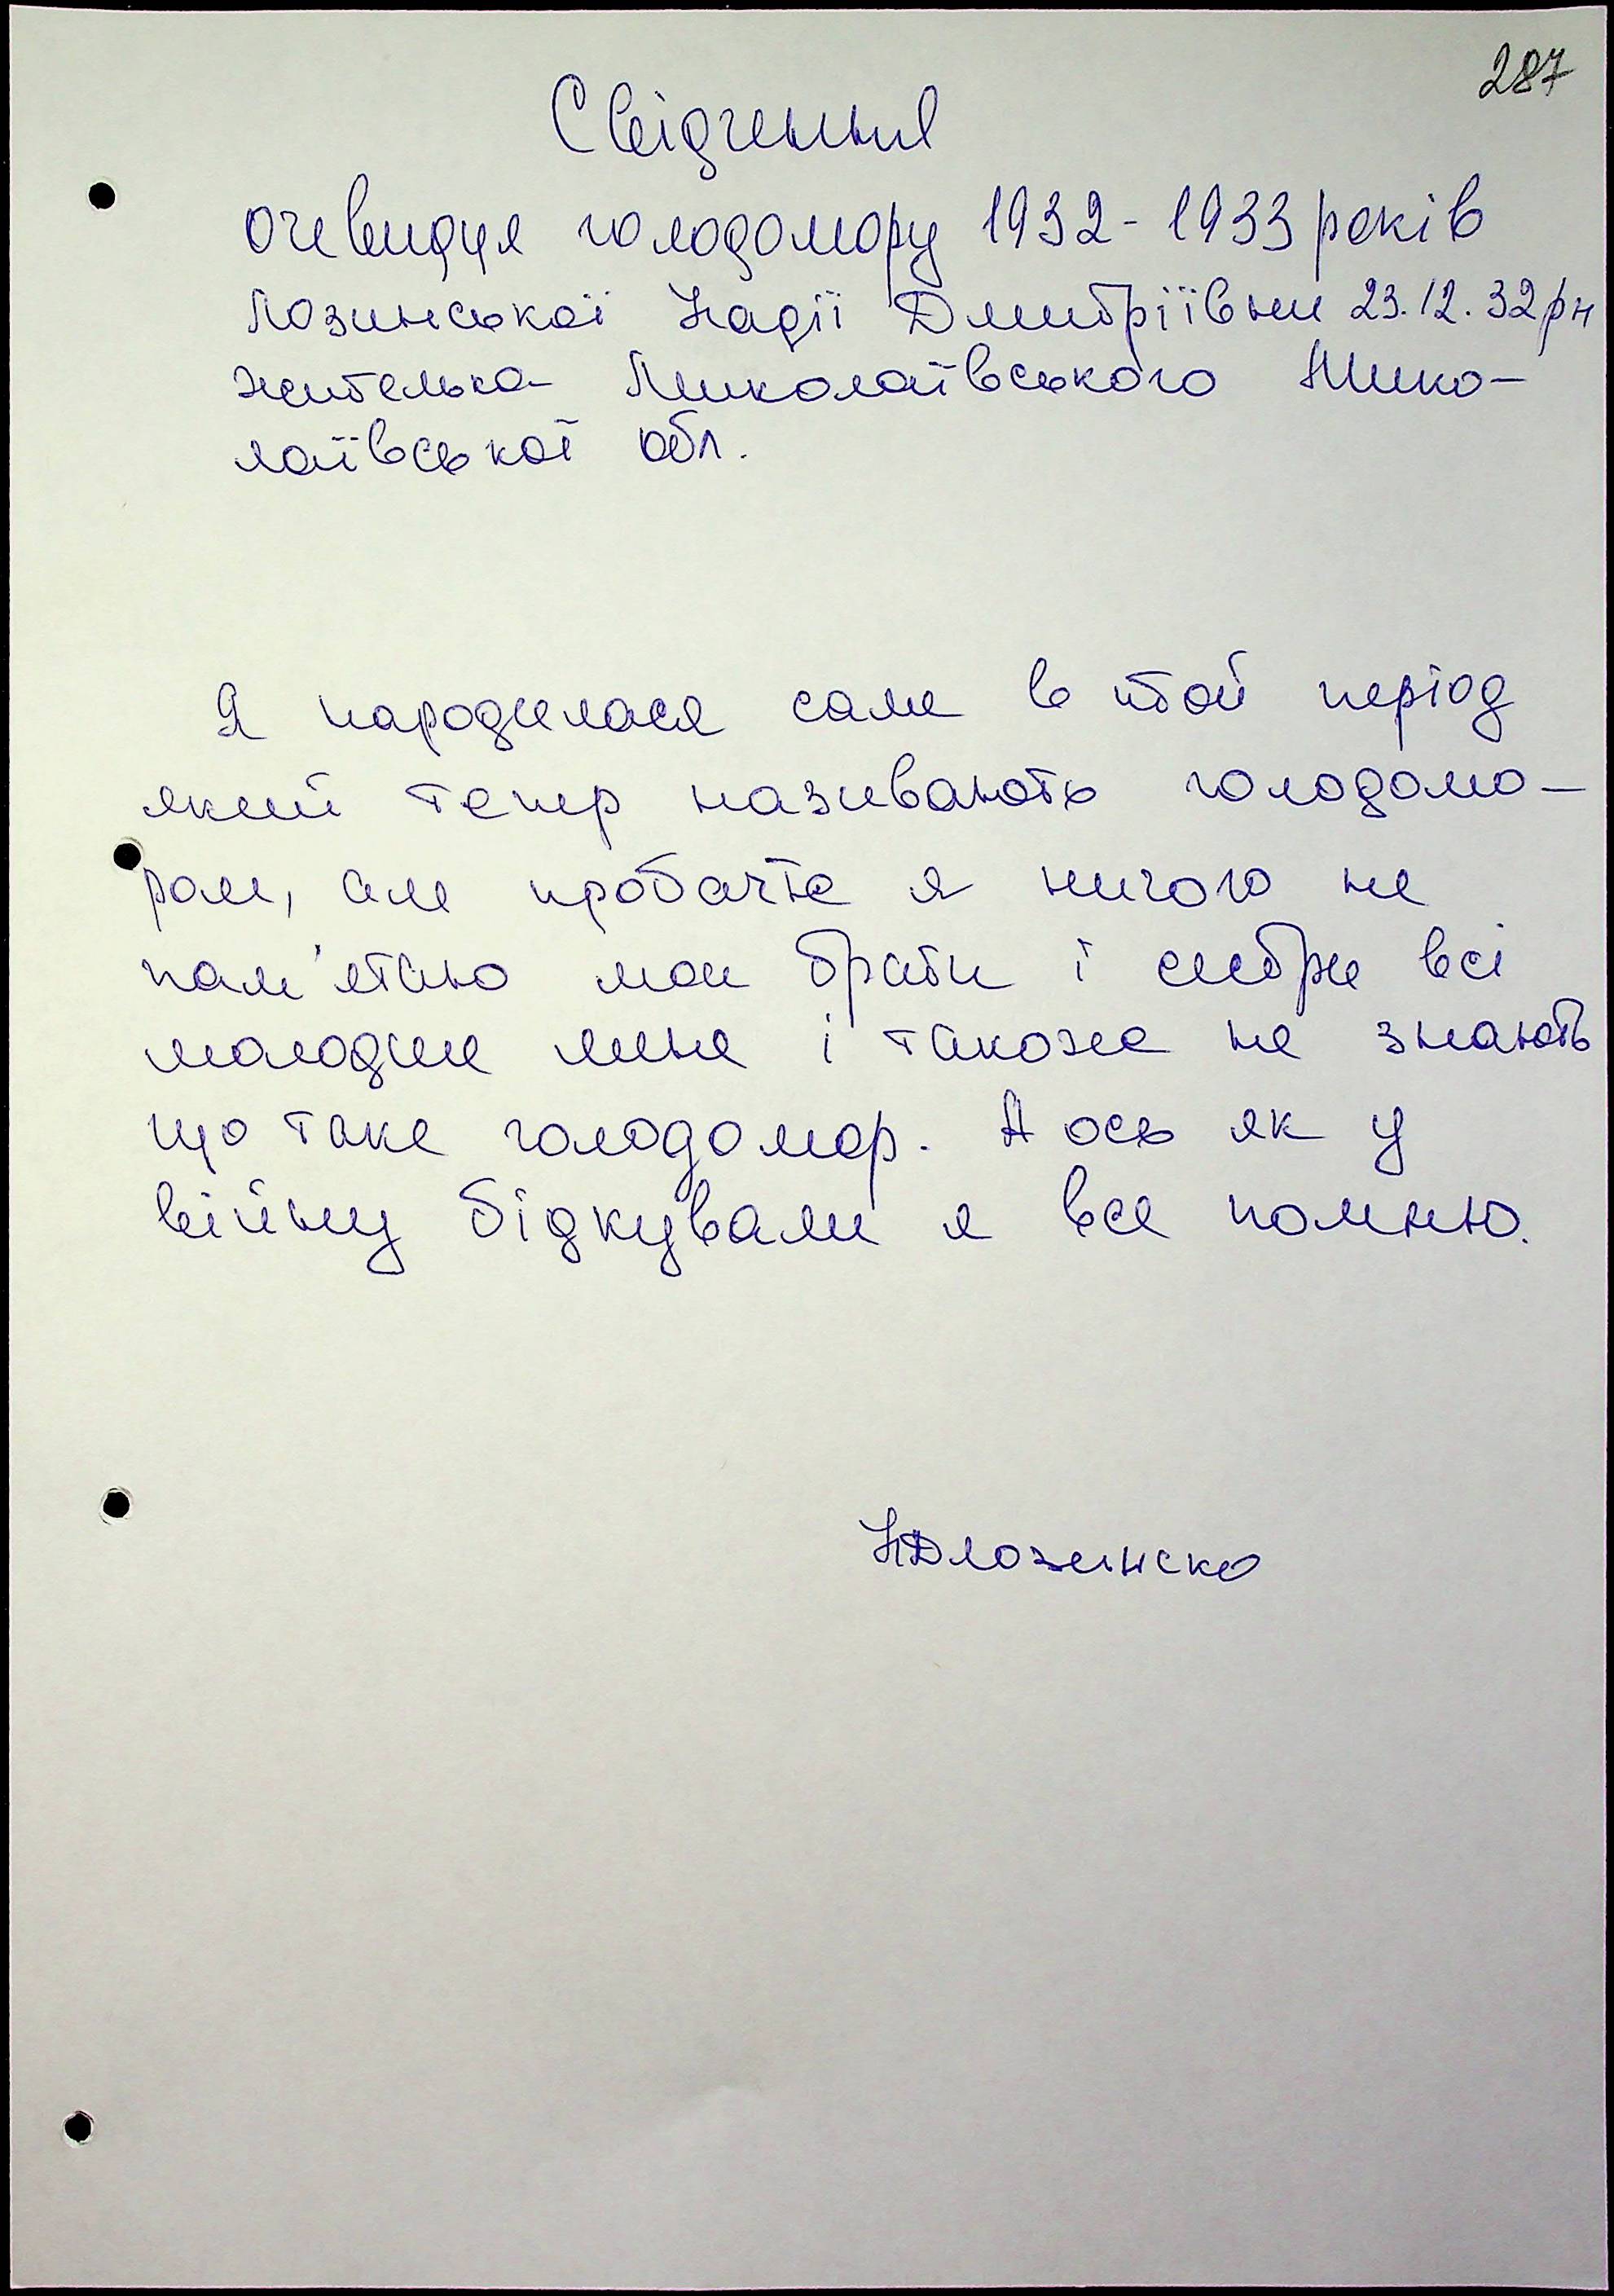 287
Свідчення
очевидця голодомору 1932-1933 років
Лозинської Надії Дмитріївни 23.12.32 рн
жителька Миколаївського Мико-
лаївської обл.
Я народилася саме в той період
який тепер називають голодомо-
ром, але пробачте я ничого не
пам'ятаю мои брати і сестри всі
молодши мене і також не знають
що таке голодомор. А ось як у
війну бідкували я все помню.
НДЛозинска